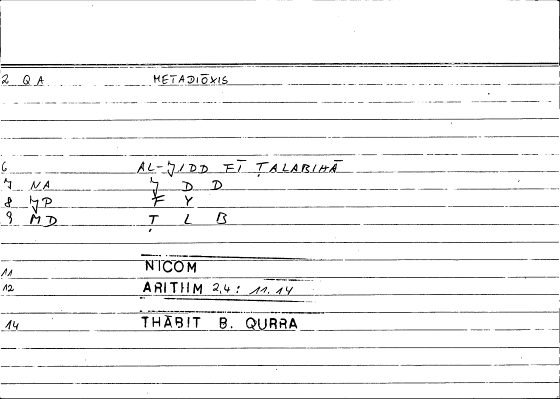 2 QA METADIŌXIS
6 AL-JIDD FĪ ṬALABIHĀ
7 NA J D D
8 JP F Y
9 MD Ṭ L B
11 NICOM
12 ARITHM 2,4: 11.14
14 THĀBIT B. QURRA